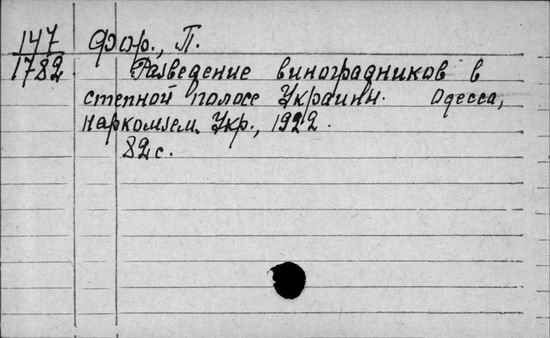 147
1782.
Фор., П.
Разведение виноградников в
степной полосе Украины. Одесса,
Наркомзем Укр., 1922.
82 с.